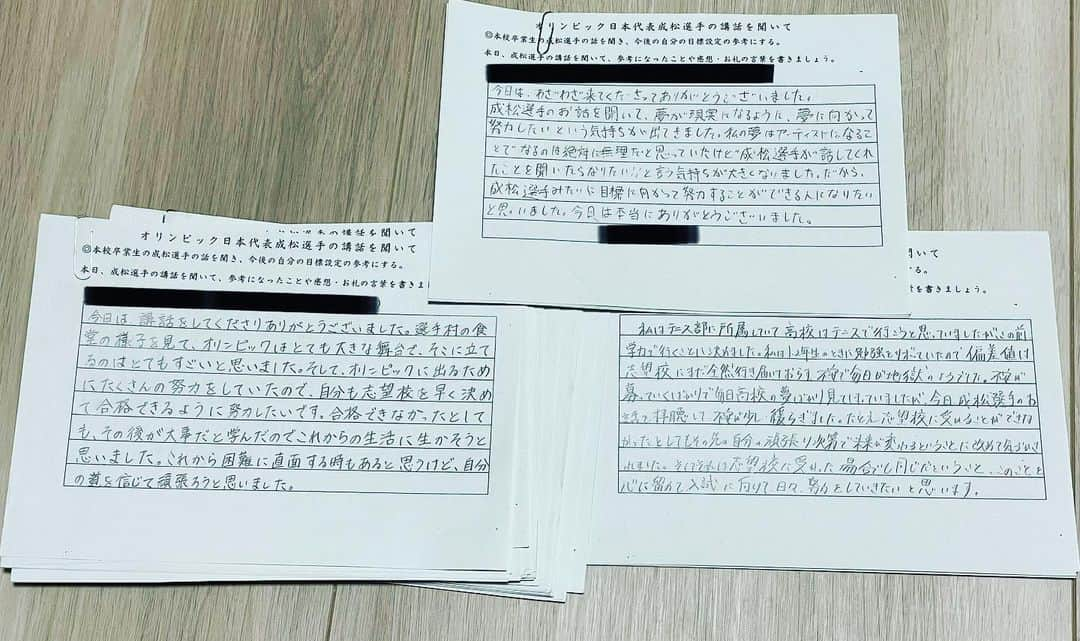 オリンピック日本代表成松選手の講話を聞いて
◎本校卒業生の成松選手の話を聞き、今後の自分の目標設定の参考にする。
本日、成松選手の講話を聞いて、参考になったことや感想・お礼の言葉を書きましょう。
今日は、わざわざ来てくださってありがとうございました。
成松選手のお話を聞いて、夢が現実になるように、夢に向かって
努力したいという気持ちが出てきました。私の夢はアーティストになるこ
とでなるのは絶対に無理だと思っていたけど成松選手が話してくれ
たことを聞いたらなりたい!!と言う気持ちが大きくなりました。だから、
成松選手みたいに目標に向かって努力することができる人になりたい
と思いました。今日は本当にありがとうございました。
選手の講話を聞いて
オリンピック日本代表成松選手の講話を聞いて
◎本校卒業生の成松選手の話を聞き、今後の自分の目標設定の参考にする。
本日、成松選手の講話を聞いて、参考になったことや感想・お礼の言葉を書きま
今日は、講話をしてくださりありがとうございました。選手村の食
堂の様子を見て、オリンピックはとても大きな舞台で、そこに立て
るのはとてもすごいと思いました。そして、オリンピックに出るため
にたくさんの努力をしていたので、自分も志望校を早く決め
て合格できるように努力したいです。合格できなかったとして
も、その後が大事だと学んだのでこれからの生活に生かそうと
思いました。これから困難に直面する時もあると思うけど、自分
の道を信じて頑張ろうと思いました。
いて
する。
を書きましょう。
私はテニス部に所属していて高校はテニスで行こうと思っていましたが、この前
学力で行くことに決めました。私は1,2年生のときに勉強をサボっていたので偏差値は
志望校にまだ全然行き届いておらず、不安で毎日が地獄のようでした。不安が
募っていくばかりで毎日高校の夢ばかり見てしまっていましたが、今日成松選手のお
話を拝聴して不安が少し和らぎました。たとえ志望校に受かることができな
かったとしてもその先の自分の頑張り次第で未来が変わるということに改めて気づかさ
れました。そしてそれは志望校に受かった場合でも同じだということ、このことを
心に留めて入試に向けて日々、努力をしていきたいと思います。